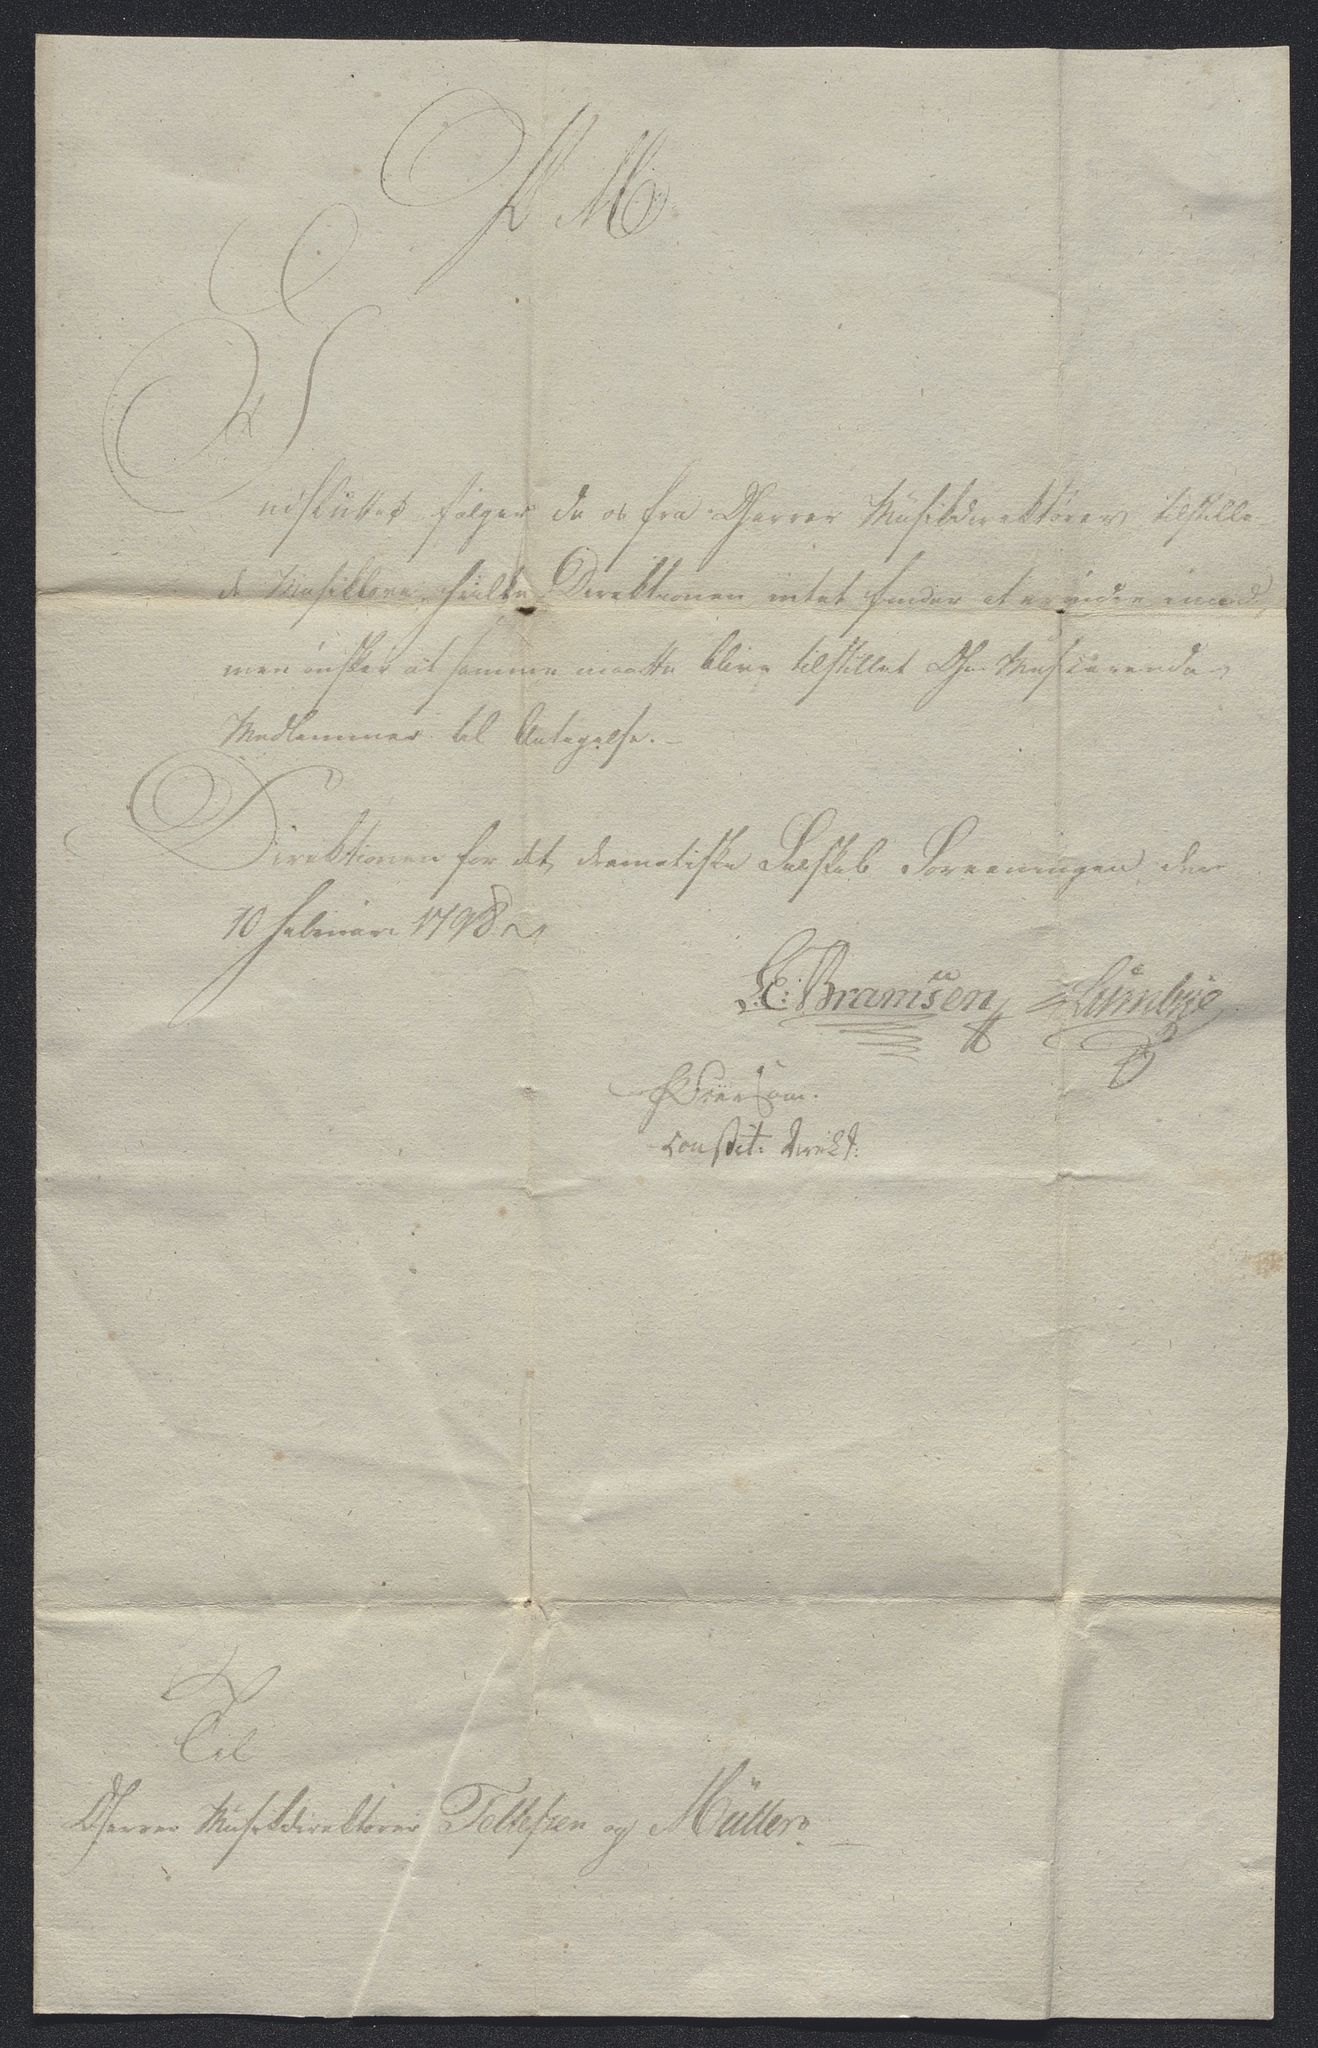 P M
Indsluttet følger de os fra Herrer Musikdirektører tilstille
de Musiklove, hvilke Direktionen intet finder at erindre imod,
men ønsker at samme maatte blive tilstillet Hr. Musicerende
Medlemmer til Antagelse. —
Direktionen for det dramatiske Selskab Foreeningen den
10 Februari 1798
Bramsen Lumbye
constit: Direkt:
Til
Herrer Musikdirektører Tellefsen og Müller. —